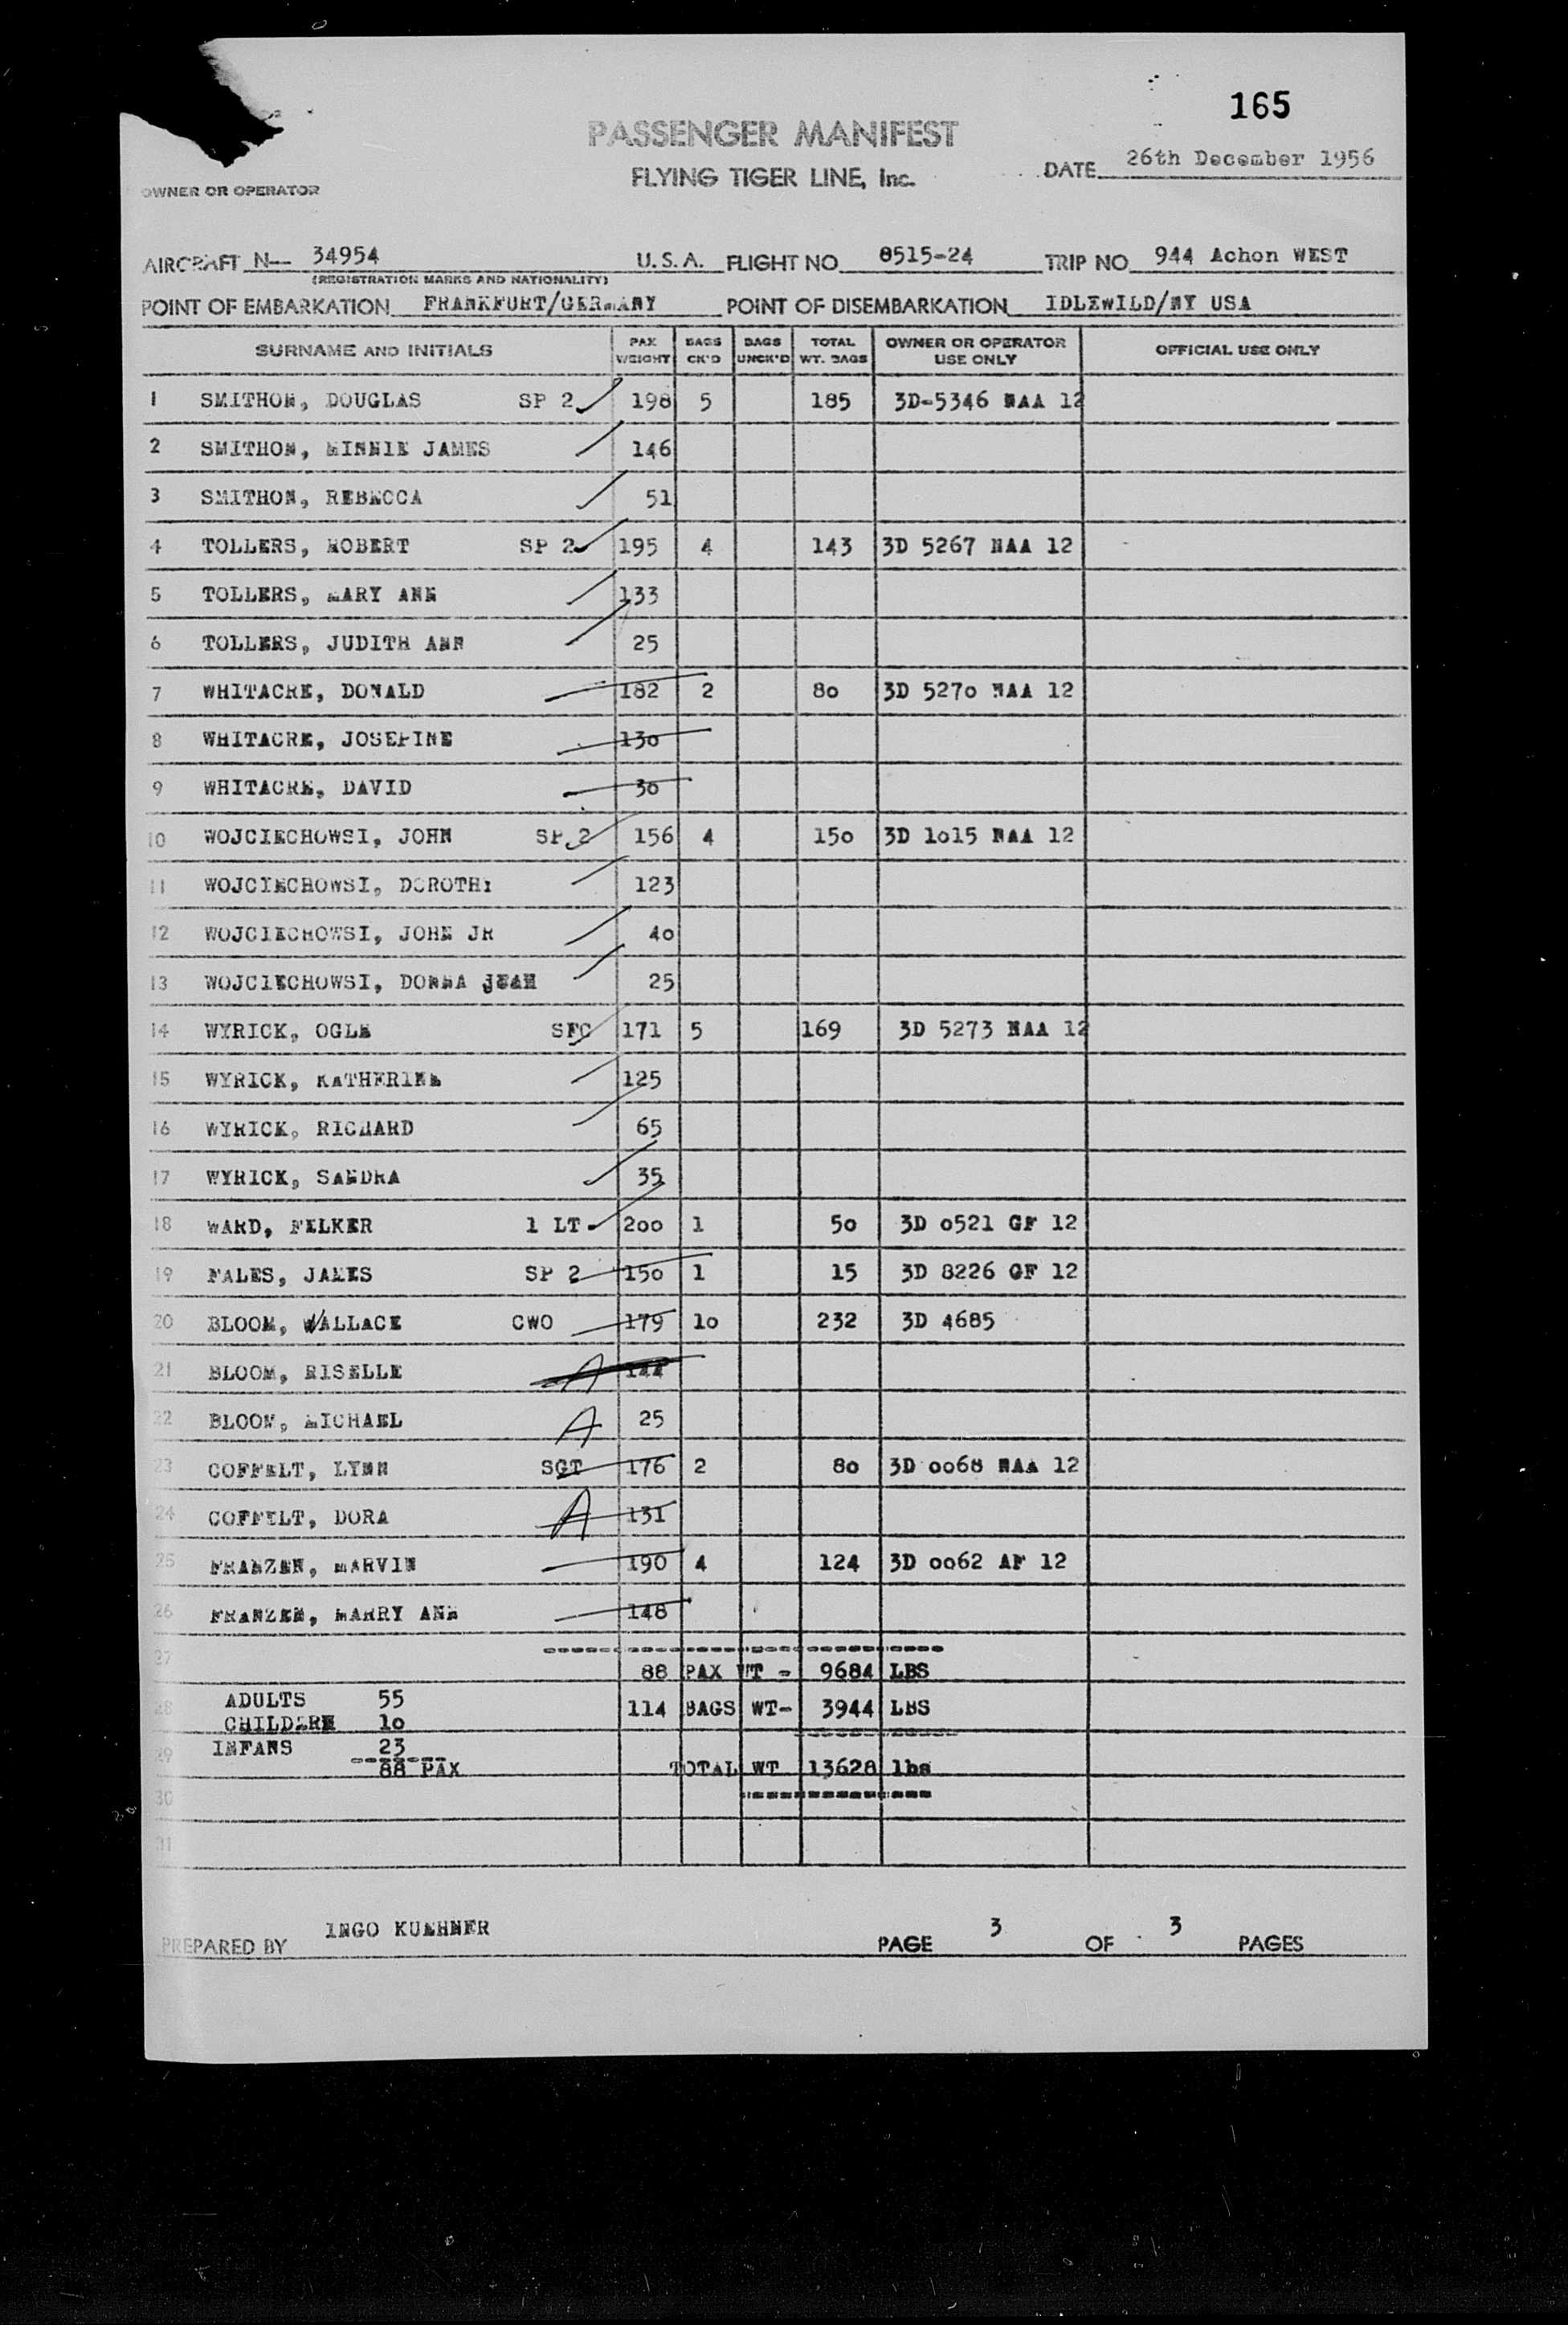 165
PASSENGER MANIFEST
FLYING TIGER LINE, Inc.
DATE 26th December 1956
OWNER OR OPERATOR
AIRCRAFT N— 34954 U.S.A. FLIGHT NO 8515-24 TRIP NO 944 Achon WEST
(REGISTRATION MARKS AND NATIONALITY)
POINT OF EMBARKATION FRANKFURT/GERMANY POINT OF DISEMBARKATION IDLEWILD/NY USA
SURNAME AND INITIALS PAX WEIGHT BAGS CK'D BAGS UNCK'D TOTAL WT. BAGS OWNER OR OPERATOR USE ONLY OFFICIAL USE ONLY
1 SMITHON, DOUGLAS SP 2 198 5 185 3D-5346 NAA 12
2 SMITHON, MINNIE JAMES 146
3 SMITHON, REBECCA 51
4 TOLLERS, ROBERT SP 2 195 4 143 3D 5267 NAA 12
5 TOLLERS, MARY ANN 133
6 TOLLERS, JUDITH ANN 25
7 WHITACRE, DONALD 182 2 80 3D 5270 NAA 12
8 WHITACRE, JOSEFINE 130
9 WHITACRE, DAVID 30
10 WOJCIECHOWSI, JOHN SP 2 156 4 150 3D 1015 NAA 12
11 WOJCIECHOWSI, DOROTHY 123
12 WOJCIECHOWSI, JOHN JR 40
13 WOJCIECHOWSI, DONNA JEAN 25
14 WYRICK, OGLE SFC 171 5 169 3D 5273 NAA 12
15 WYRICK, KATHERINE 125
16 WYRICK, RICHARD 65
17 WYRICK, SANDRA 35
18 WARD, FELKER 1 LT 200 1 50 3D 0521 GF 12
19 FALES, JAMES SP 2 150 1 15 3D 8226 GF 12
20 BLOOM, WALLACE CWO 179 10 232 3D 4685
21 BLOOM, RISELLE A 144
22 BLOOM, MICHAEL A 25
23 COFFELT, LYNN SGT 176 2 80 3D 0068 NAA 12
24 COFFELT, DORA A 131
25 FRANZEN, MARVIN 190 4 124 3D 0062 AF 12
26 FRANZEN, MARRY ANN 148
27 88 PAX WT - 9684 LBS
28 ADULTS 55 114 BAGS WT- 3944 LBS
CHILDERN 10
29 INFANS 23
88 PAX TOTAL WT 13628 lbs
30
31
PREPARED BY INGO KUEHNER PAGE 3 OF 3 PAGES